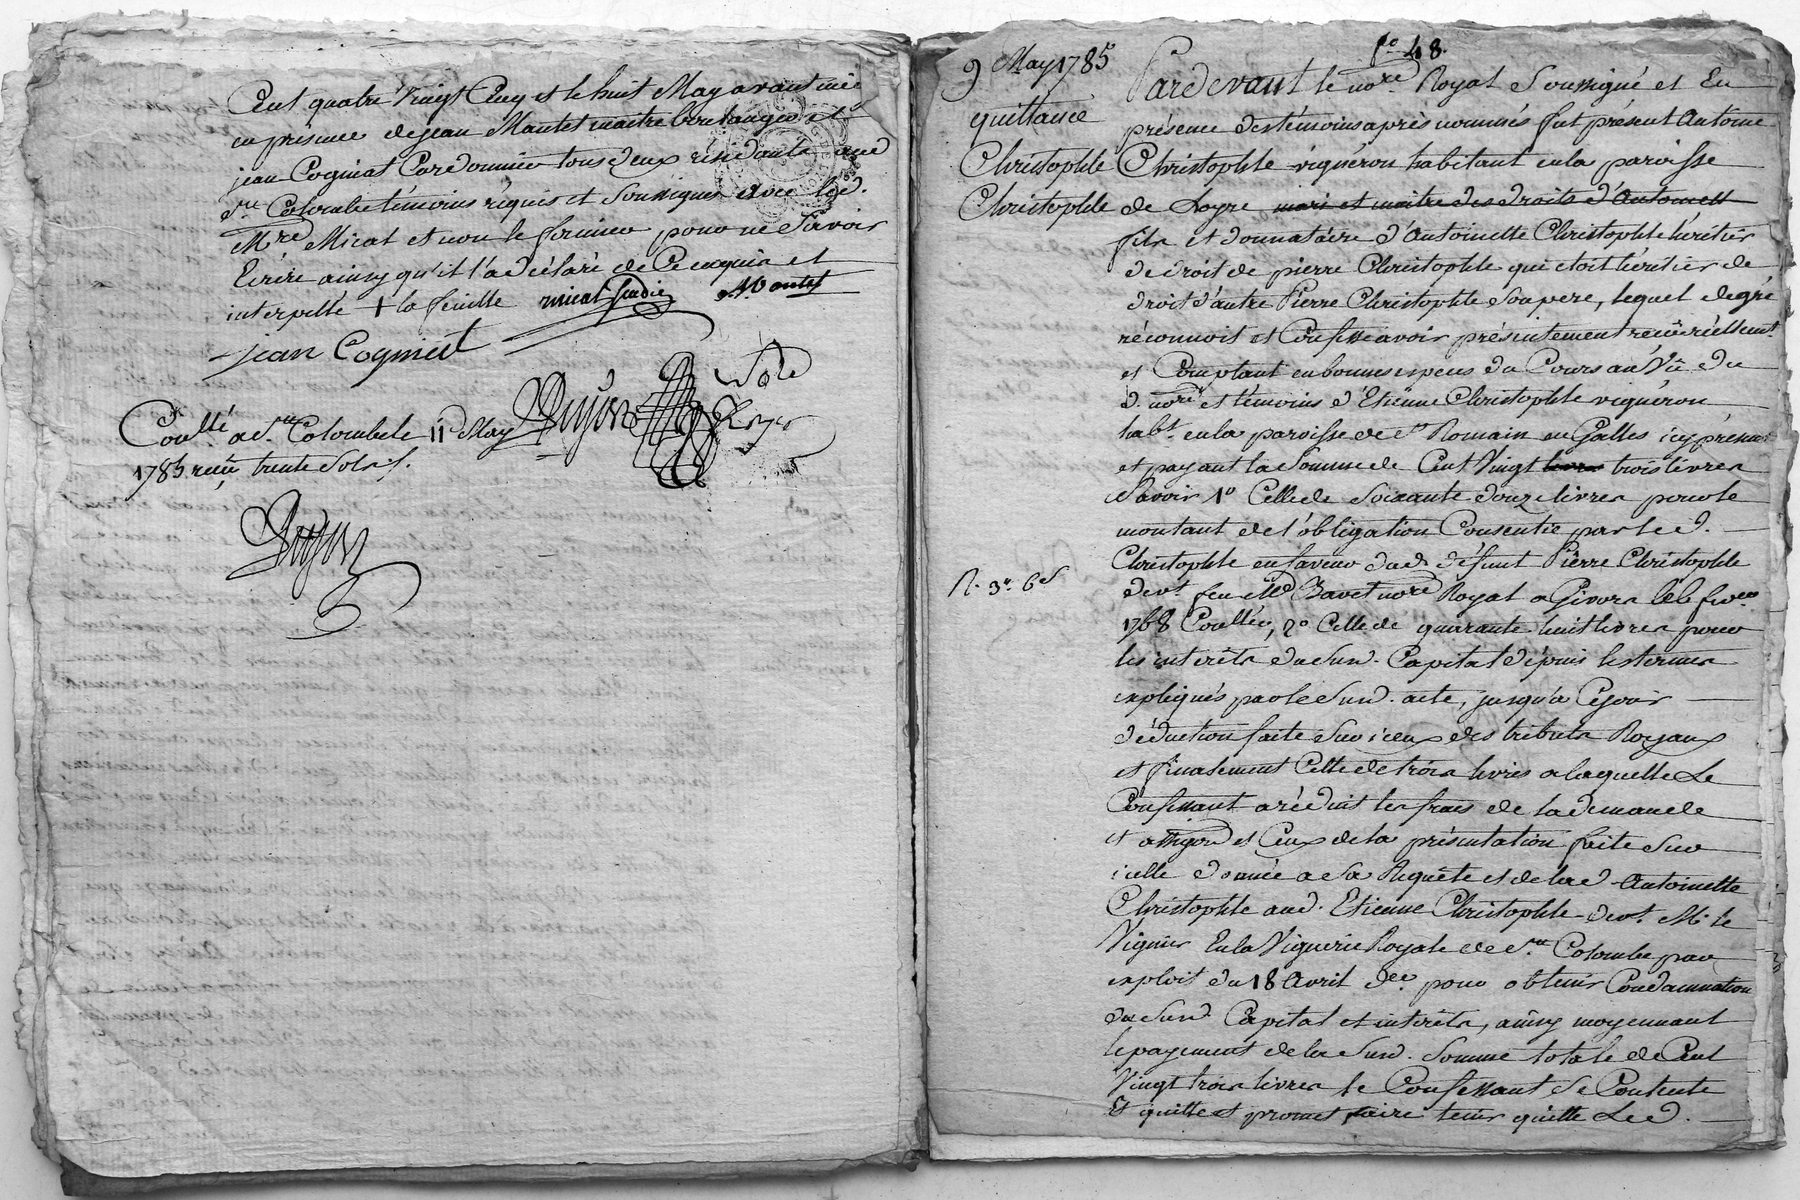 Cent quatre Vingt Cinq et le huit May avant midi
en presence de jean Mantet maitre boulanger et
jean Cogniat Cordonnier tous deux résidants aud
Ste Colombe témoins réquis et soussignes avec led.
Mre Micat et non le fermier pour ne savoir
Ecrire ainsy qu'il l'a déclaré de ce enquis et
interpellé + la feuille micat Mantet
jean Cogniat
Con.llé a Ste Colombe le 11 May
1785 reçu trente sols ./.
9 May 1785
quittance
Christophle
Christophle
R. 3# 6s
fo 48.
Pardevant le nore Royal Soussigné et En
présence des témoins après nommés fut présent Antoine
Christophle vignéron habitant en la paroisse
de Loyre mari et maitre des droits d'Antoinett
fils et donnataire d'Antoinette Christophle héritier
de droit de pierre Christophle qui étoit héritier de
droit d'autre Pierre Christophle son pere, lequel de gré
réconnoit et Confesse avoir présentement reçu réellemt
et Comptant en bonnes especes du Cours au Vû du
d. nore et témoins d'Etienne Christophle vignéron
habt. en la paroisse de St Romain en Galles icy présent
et payant la Somme de Cent Vingt livres trois livres
Savoir 1o Celle de Soixante douze livres pour le
montant de l'obligation Consentie par led.
Christophle en faveur dud. défunt Pierre Christophle
devt. feu Me Bavet nore Royal a Givors le 6
1768 Con.llée, 2o Celle de quarante huit livres pour
les interêts du Susd. Capital dépuis les termes
expliqués par le Susd. acte, jusqu'a Ce jour
déduction faite Sur iceux des tributs Royaux
et finalement Celle de trois livres a laquelle Le
Confessant a réduit les frais de la demande
et assigon et Ceux de la présentation faite Sur
icelle donnée a Sa Requête et de lad. Antoinette
Christophle aud. Etienne Christophle devt. Mr le
Viguier En la Viguerie Royale de Ste Colombe par
exploit du 18 Avril der. pour obtenir Condamnation
du Susd. Capital et interêts, ainsy moyennant
le payement de la Susd. Somme totale de Cent
Vingt trois livres le Confessant Se Contente
Et quitte et promet faire tenir quitte Led.